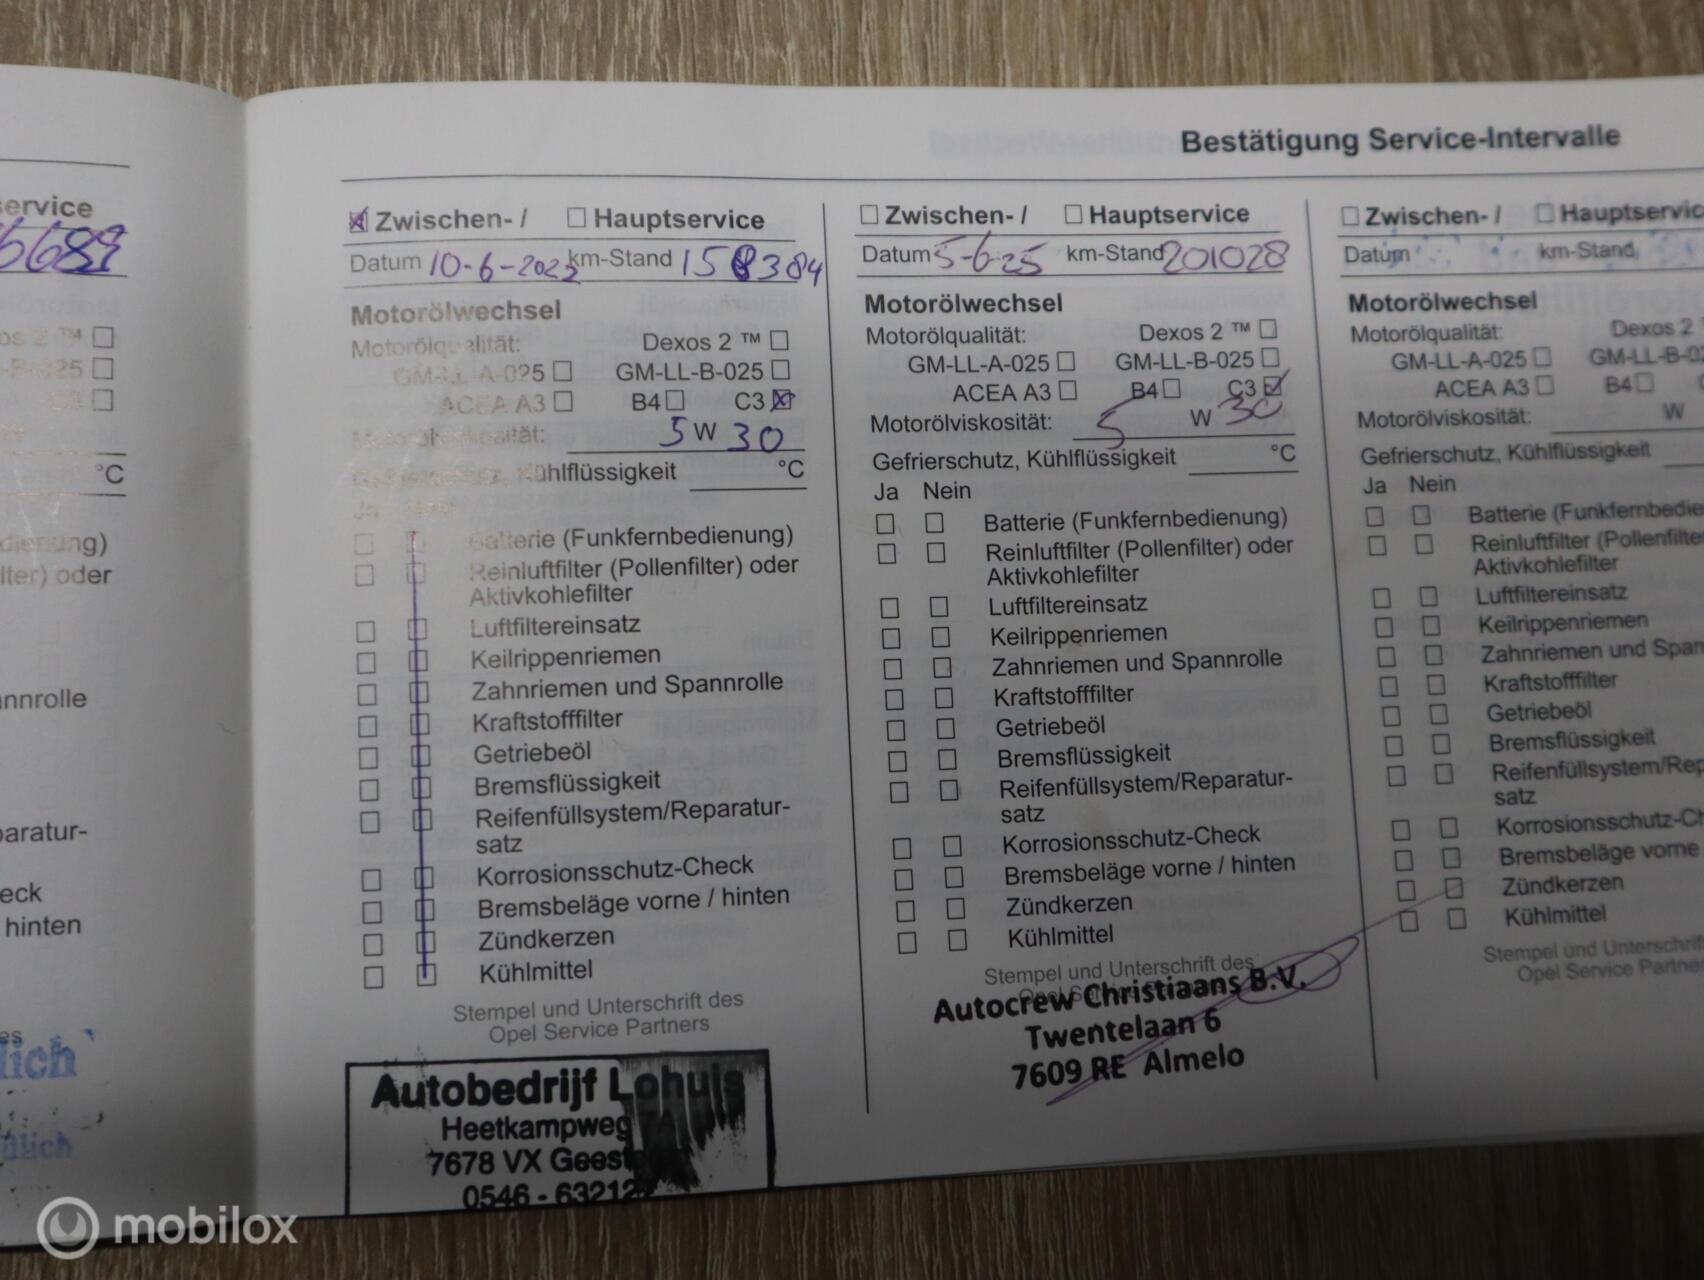 Bestätigung Service-Intervalle
service
668
os 2 ™
°C
dienung)
lter) oder
annrolle
paratur-
eck
hinten
es
lich
dlich
Zwischen- / Hauptservice
Datum 10-6-2022 km-Stand 158384
Motorölwechsel
Motorölqualität: Dexos 2 ™
GM-LL-A-025 GM-LL-B-025
ACEA A3 B4 C3
Motorölviskosität: 5 W 30
Gefrierschutz, Kühlflüssigkeit °C
Ja Nein
Batterie (Funkfernbedienung)
Reinluftfilter (Pollenfilter) oder
Aktivkohlefilter
Luftfiltereinsatz
Keilrippenriemen
Zahnriemen und Spannrolle
Kraftstofffilter
Getriebeöl
Bremsflüssigkeit
Reifenfüllsystem/Reparatur-
satz
Korrosionsschutz-Check
Bremsbeläge vorne / hinten
Zündkerzen
Kühlmittel
Stempel und Unterschrift des
Opel Service Partners
Autobedrijf Lohuis
Heetkampweg 7A
7678 VX Geest
0546 - 63212
Zwischen- / Hauptservice
Datum 5-6-25 km-Stand 201028
Motorölwechsel
Motorölqualität: Dexos 2 ™
GM-LL-A-025 GM-LL-B-025
ACEA A3 B4 C3
Motorölviskosität: 5 W 30
Gefrierschutz, Kühlflüssigkeit °C
Ja Nein
Batterie (Funkfernbedienung)
Reinluftfilter (Pollenfilter) oder
Aktivkohlefilter
Luftfiltereinsatz
Keilrippenriemen
Zahnriemen und Spannrolle
Kraftstofffilter
Getriebeöl
Bremsflüssigkeit
Reifenfüllsystem/Reparatur-
satz
Korrosionsschutz-Check
Bremsbeläge vorne / hinten
Zündkerzen
Kühlmittel
Stempel und Unterschrift des
Opel Service Partners
Autocrew Christiaans B.V.
Twentelaan 6
7609 RE Almelo
Zwischen- / Hauptservic
Datum km-Stand
Motorölwechsel
Motorölqualität: Dexos 2
GM-LL-A-025 GM-LL-B-02
ACEA A3 B4
Motorölviskosität: W
Gefrierschutz, Kühlflüssigkeit
Ja Nein
Batterie (Funkfernbedie
Reinluftfilter (Pollenfilte
Aktivkohlefilter
Luftfiltereinsatz
Keilrippenriemen
Zahnriemen und Span
Kraftstofffilter
Getriebeöl
Bremsflüssigkeit
Reifenfüllsystem/Rep
satz
Korrosionsschutz-Ch
Bremsbeläge vorne
Zündkerzen
Kühlmittel
Stempel und Unterschrift
Opel Service Partner
mobilox